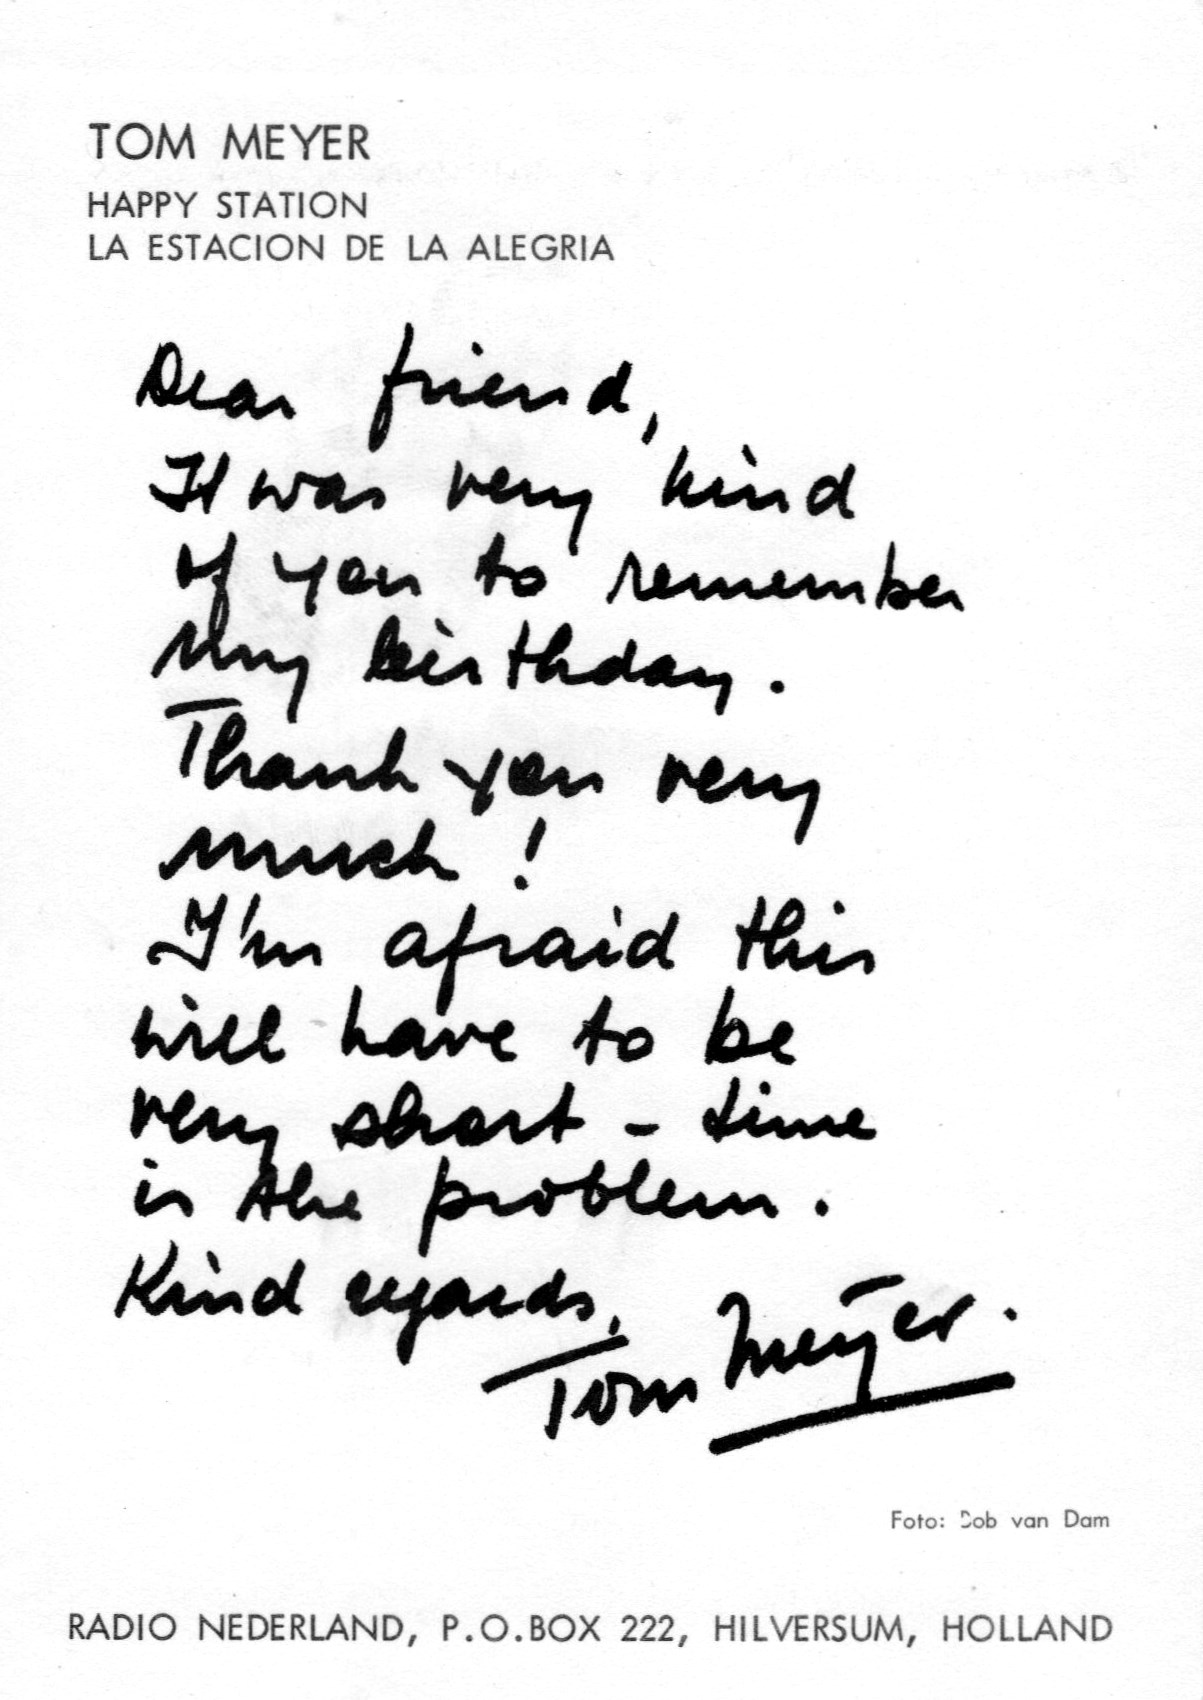 TOM MEYER
HAPPY STATION
LA ESTACION DE LA ALEGRIA
Dear friend,
It was very kind
of you to remember
my birthday.
Thank you very
much!
I'm afraid this
will have to be
very short - time
is the problem.
Kind regards,
Tom Meyer.
Foto: Bob van Dam
RADIO NEDERLAND, P.O.BOX 222, HILVERSUM, HOLLAND